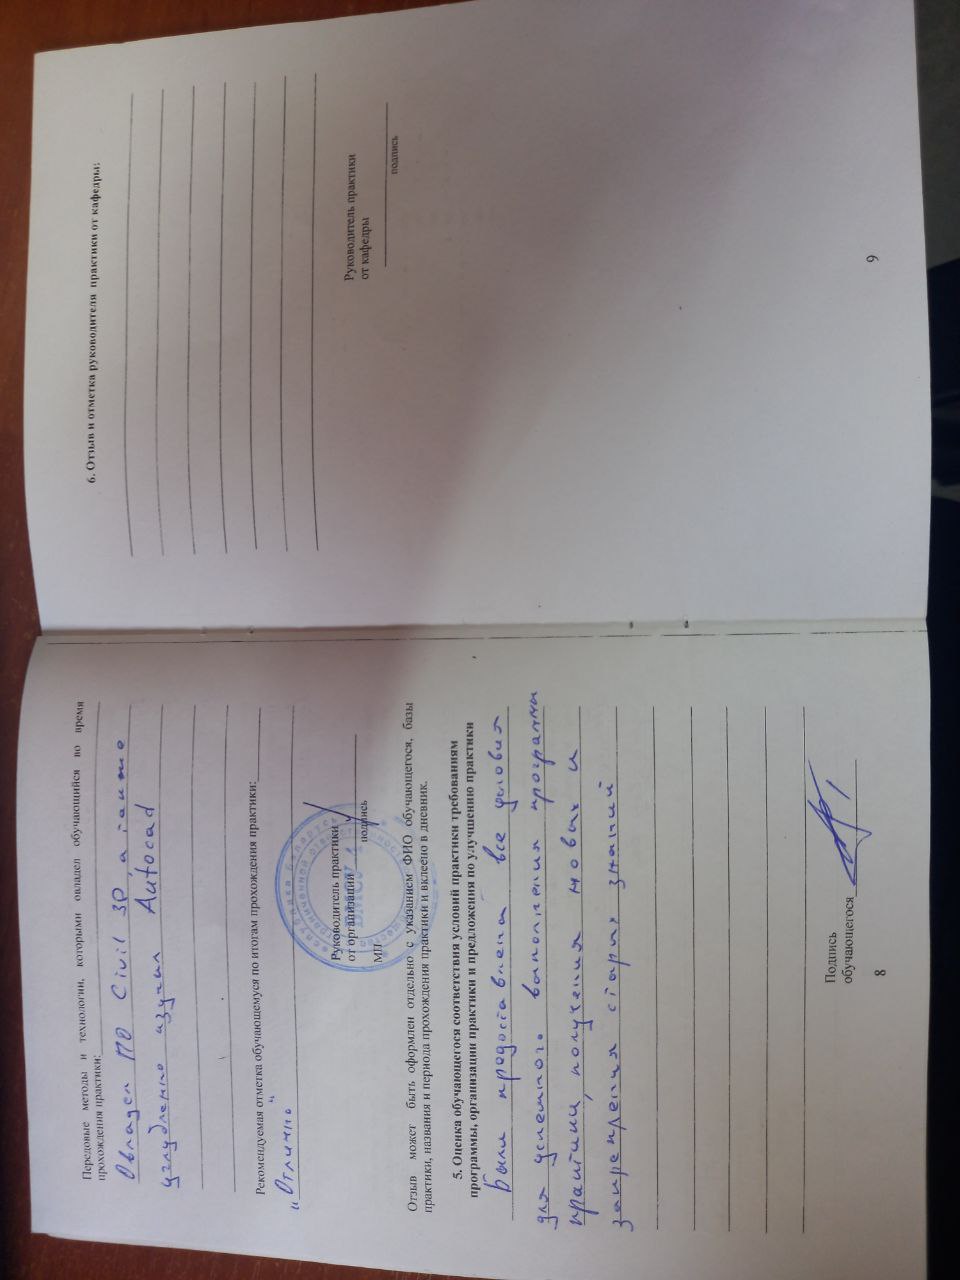 Передовые методы и технологии, которыми овладел обучающийся во время
прохождения практики:
Овладел ПО Civil 3D, а также
углубленно изучил Autocad
Рекомендуемая отметка обучающемуся по итогам прохождения практики:
"Отлично"
Руководитель практики
от организации
подпись
МП
Отзыв может быть оформлен отдельно с указанием ФИО обучающегося, базы
практики, названия и периода прохождения практики и вклеено в дневник.
5. Оценка обучающегося соответствия условий практики требованиям
программы, организации практики и предложения по улучшению практики
Были предоставлены все условия
для успешного выполнения программы
практики, получения новых и
закрепления старых знаний
Подпись
обучающегося
8
6. Отзыв и отметка руководителя практики от кафедры:
Руководитель практики
от кафедры
подпись
9